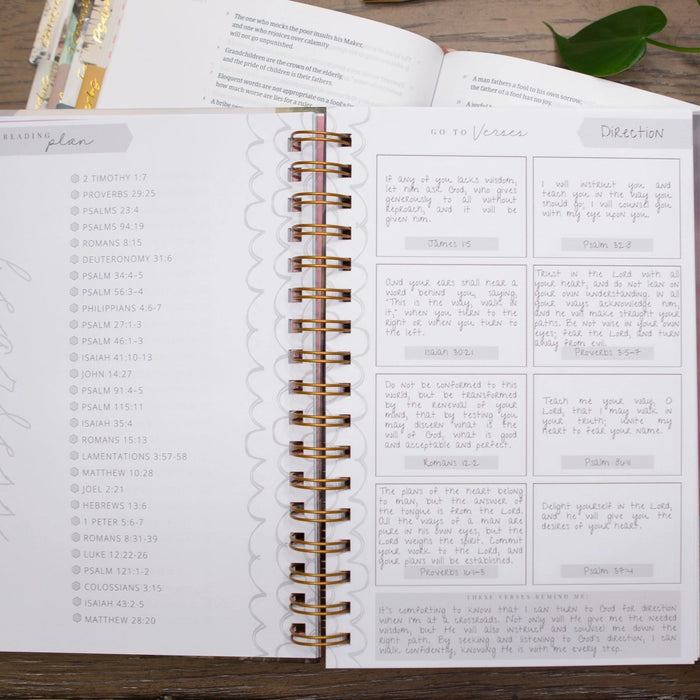 The one who mocks the poor insults his Maker,
and one who rejoices over calamity
will not go unpunished.
Grandchildren are the crown of the elderly,
and the pride of children is their fathers.
Eloquent words are not appropriate on a fool's
how much worse are lies for a ruler
A bribe
A man fathers a fool to his own sorrow;
the father of a fool has no joy.
A joyful
READING plan
2 TIMOTHY 1:7
PROVERBS 29:25
PSALMS 23:4
PSALMS 94:19
ROMANS 8:15
DEUTERONOMY 31:6
PSALM 34:4-5
PSALM 56:3-4
PHILIPPIANS 4:6-7
PSALM 27:1-3
PSALM 46:1-3
ISAIAH 41:10-13
JOHN 14:27
PSALM 91:4-5
PSALM 115:11
ISAIAH 35:4
ROMANS 15:13
LAMENTATIONS 3:57-58
MATTHEW 10:28
JOEL 2:21
HEBREWS 13:6
1 PETER 5:6-7
ROMANS 8:31-39
LUKE 12:22-26
PSALM 121:1-2
COLOSSIANS 3:15
ISAIAH 43:2-5
MATTHEW 28:20
GO TO Verses
Direction
If any of you lacks wisdom,
let him ask God, who gives
generously to all without
reproach, and it will be
given him.
James 1:5
I will instruct you and
teach you in the way you
should go; I will counsel you
with my eye upon you.
Psalm 32:8
And your ears shall hear a
word behind you, saying,
"This is the way, walk in
it," when you turn to the
right or when you turn to
the left.
Isaiah 30:21
Trust in the Lord with all
your heart, and do not lean on
your own understanding. In all
your ways acknowledge him,
and he will make straight your
paths. Be not wise in your own
eyes; fear the Lord, and turn
away from evil.
Proverbs 3:5-7
Do not be conformed to this
world, but be transformed
by the renewal of your
mind, that by testing you
may discern what is the
will of God, what is good
and acceptable and perfect.
Romans 12:2
Teach me your way, O
Lord, that I may walk in
your truth; unite my
heart to fear your name.
Psalm 86:11
The plans of the heart belong
to man, but the answer of
the tongue is from the Lord.
All the ways of a man are
pure in his own eyes, but the
Lord weighs the spirit. Commit
your work to the Lord, and
your plans will be established.
Proverbs 16:1-3
Delight yourself in the Lord,
and he will give you the
desires of your heart.
Psalm 37:4
THESE VERSES REMIND ME:
It's comforting to know that I can turn to God for direction
when I'm at a crossroads. Not only will He give me the needed
wisdom, but He will also instruct and counsel me down the
right path. By seeking and listening to God's direction, I can
walk confidently, knowing He is with me every step.